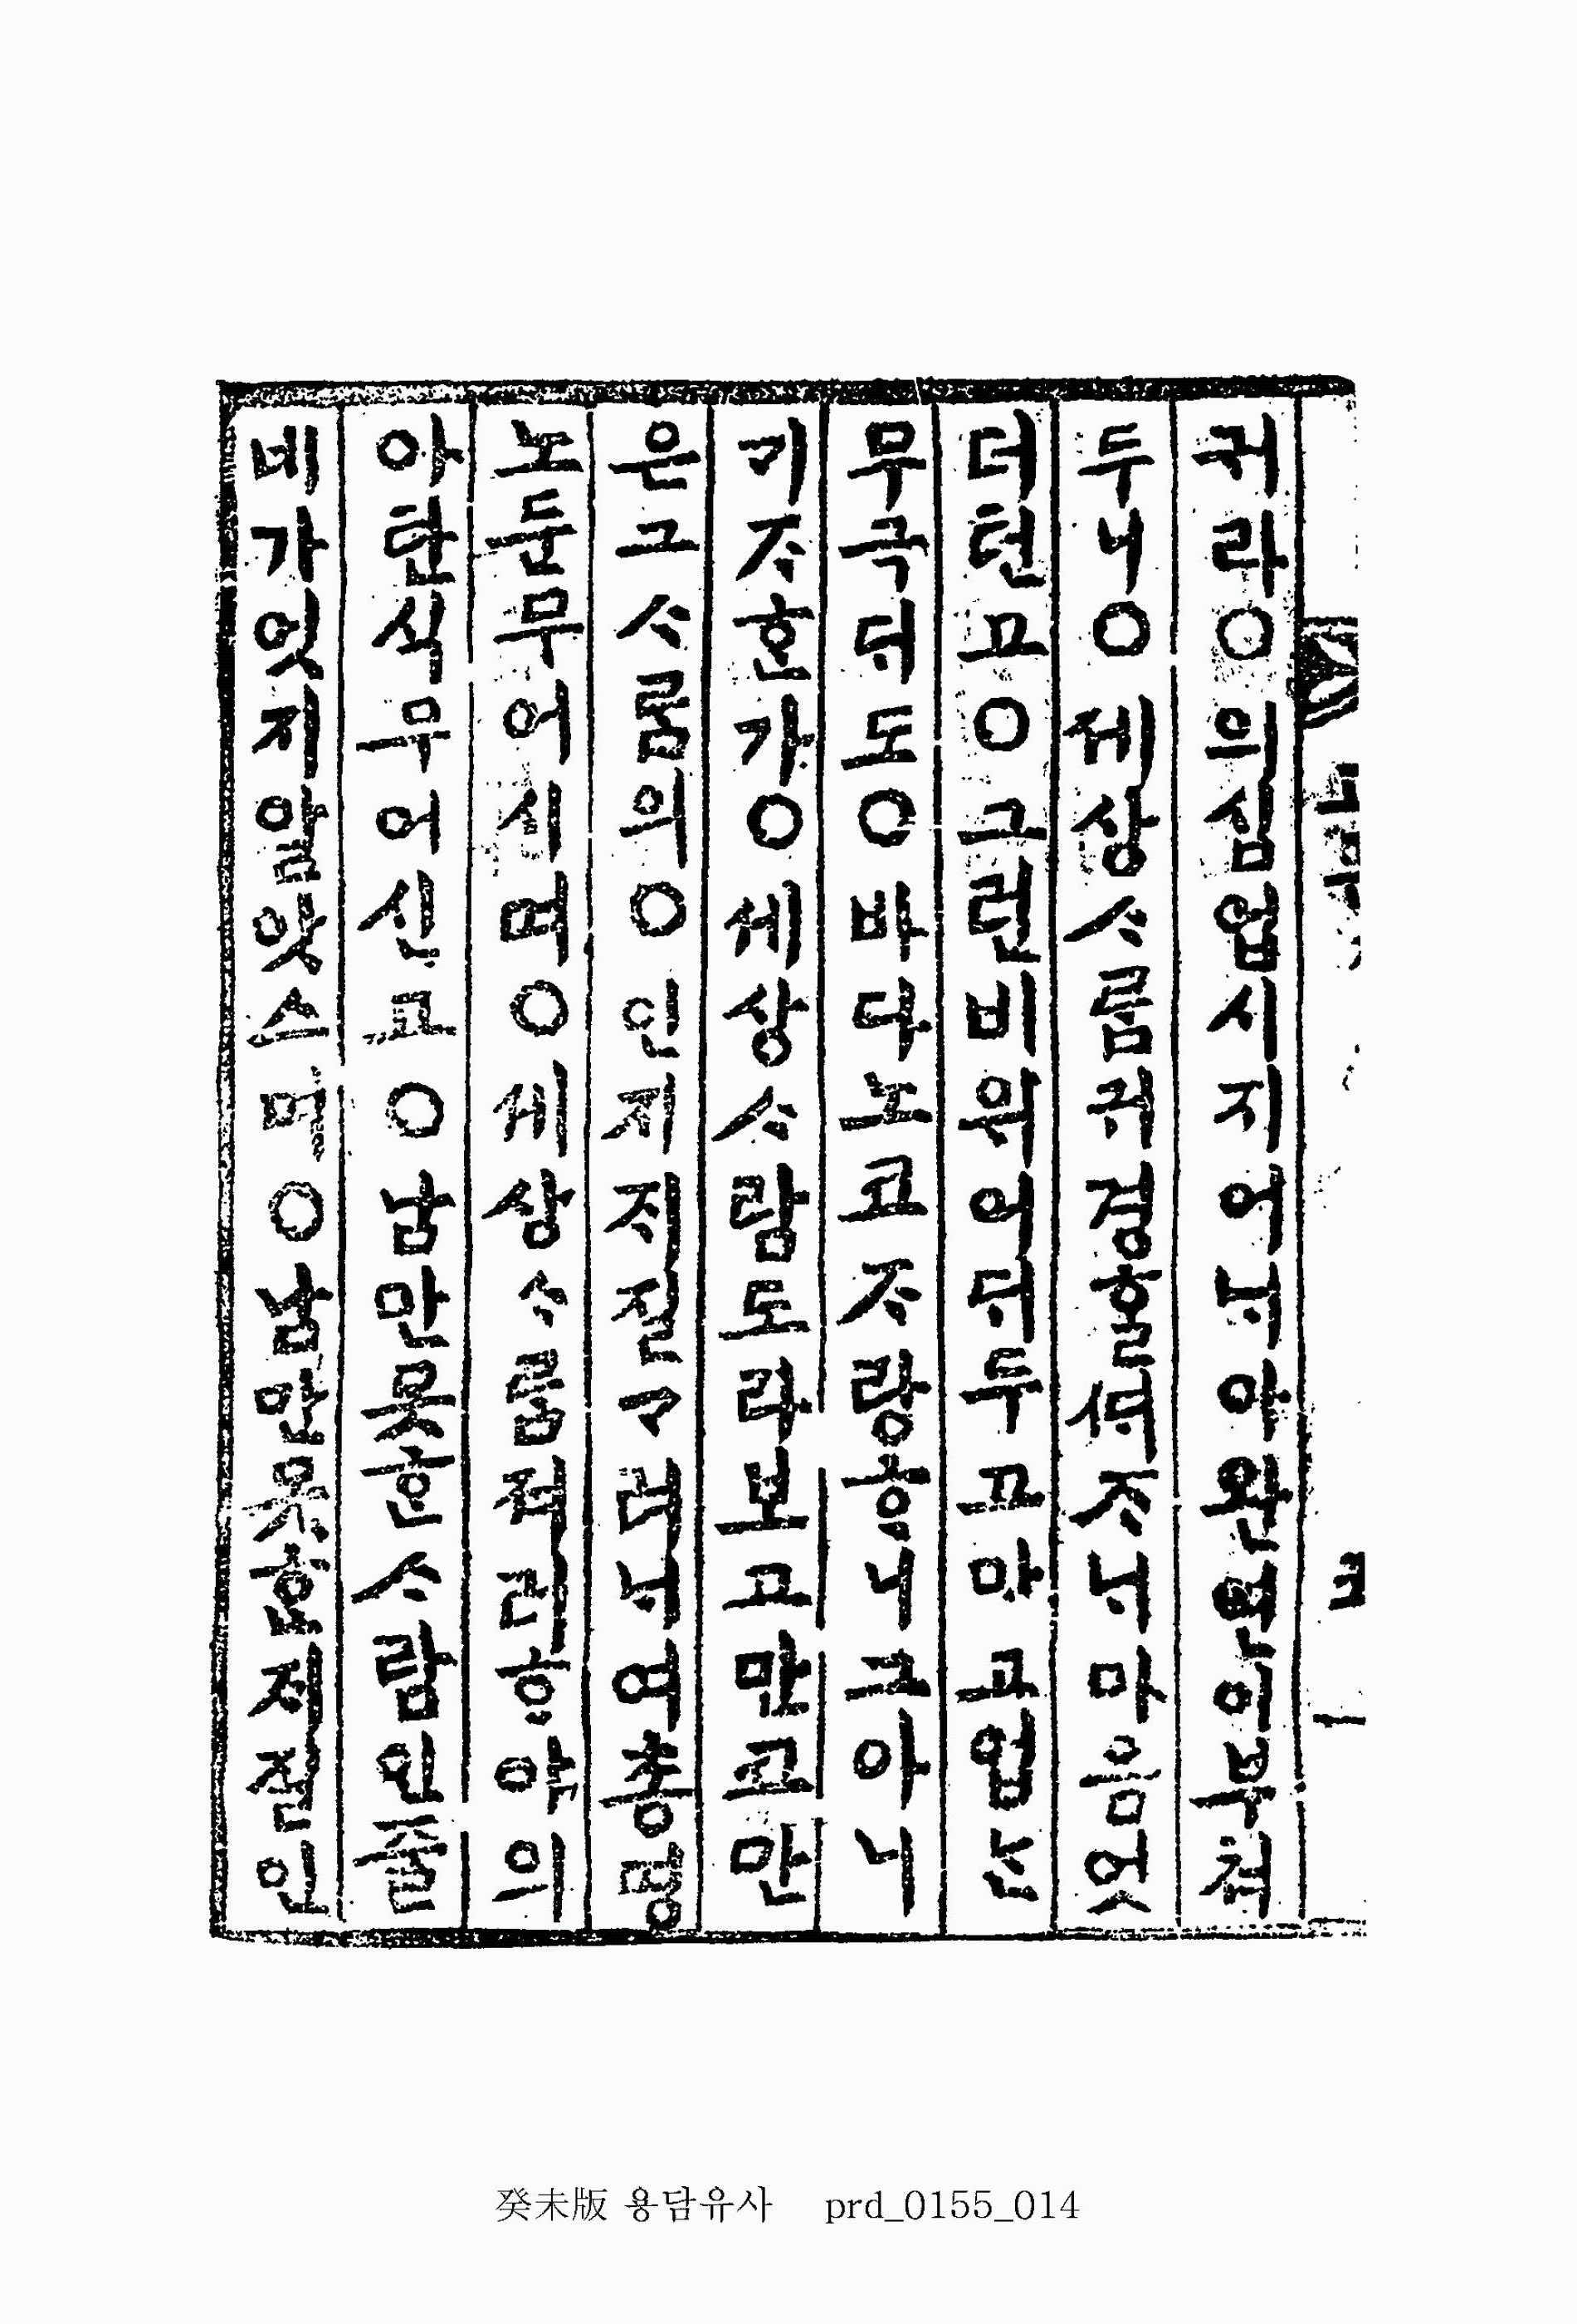 귀라○의심업시지어ᄂᆡ야완연이부쳐
두니○세상ᄉᆞᄅᆞᆷ귀경ᄒᆞᆯᄯᆡᄌᆞᄂᆡ마음엇
더턴고○그런비위어ᄃᆡ두고마고업ᄂᆞᆫ
무극ᄃᆡ도○바다노코ᄌᆞ랑ᄒᆞ니그아니
기ᄌᆞᄒᆞᆫ가○세상ᄉᆞ람도라보고만코만
은그ᄉᆞᄅᆞᆷ의○인지ᄌᆡ질ᄀᆞ려ᄂᆡ여총명
노둔무어시며○세상ᄉᆞᄅᆞᆷ져러ᄒᆞ야의
아탄식무어신고○남만못ᄒᆞᆫᄉᆞ람인줄
네가엇지알앗스며○남만못ᄒᆞᆫᄌᆡ질인
癸未版 용담유사 prd_0155_014